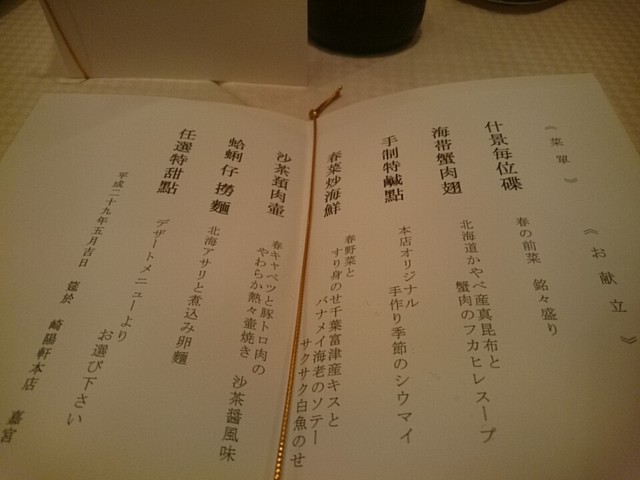 《菜單》
《お献立》
什景毎位碟
春の前菜 銘々盛り
海帯蟹肉翅
北海道かやべ産真昆布と
蟹肉のフカヒレスープ
手制特鹹點
本店オリジナル
手作り季節のシウマイ
春菜炒海鮮
春野菜と
すり身のせ千葉富津産キスと
バナメイ海老のソテー
サクサク白魚のせ
沙茶頚肉壷
春キャベツと豚トロ肉の
やわらか熱々壷焼き 沙茶醤風味
蛤蜊仔撈麵
北海アサリと煮込み卵麺
任選特甜點
デザートメニューより
お選び下さい
平成二十九年五月吉日 筵於 崎陽軒本店 嘉宮